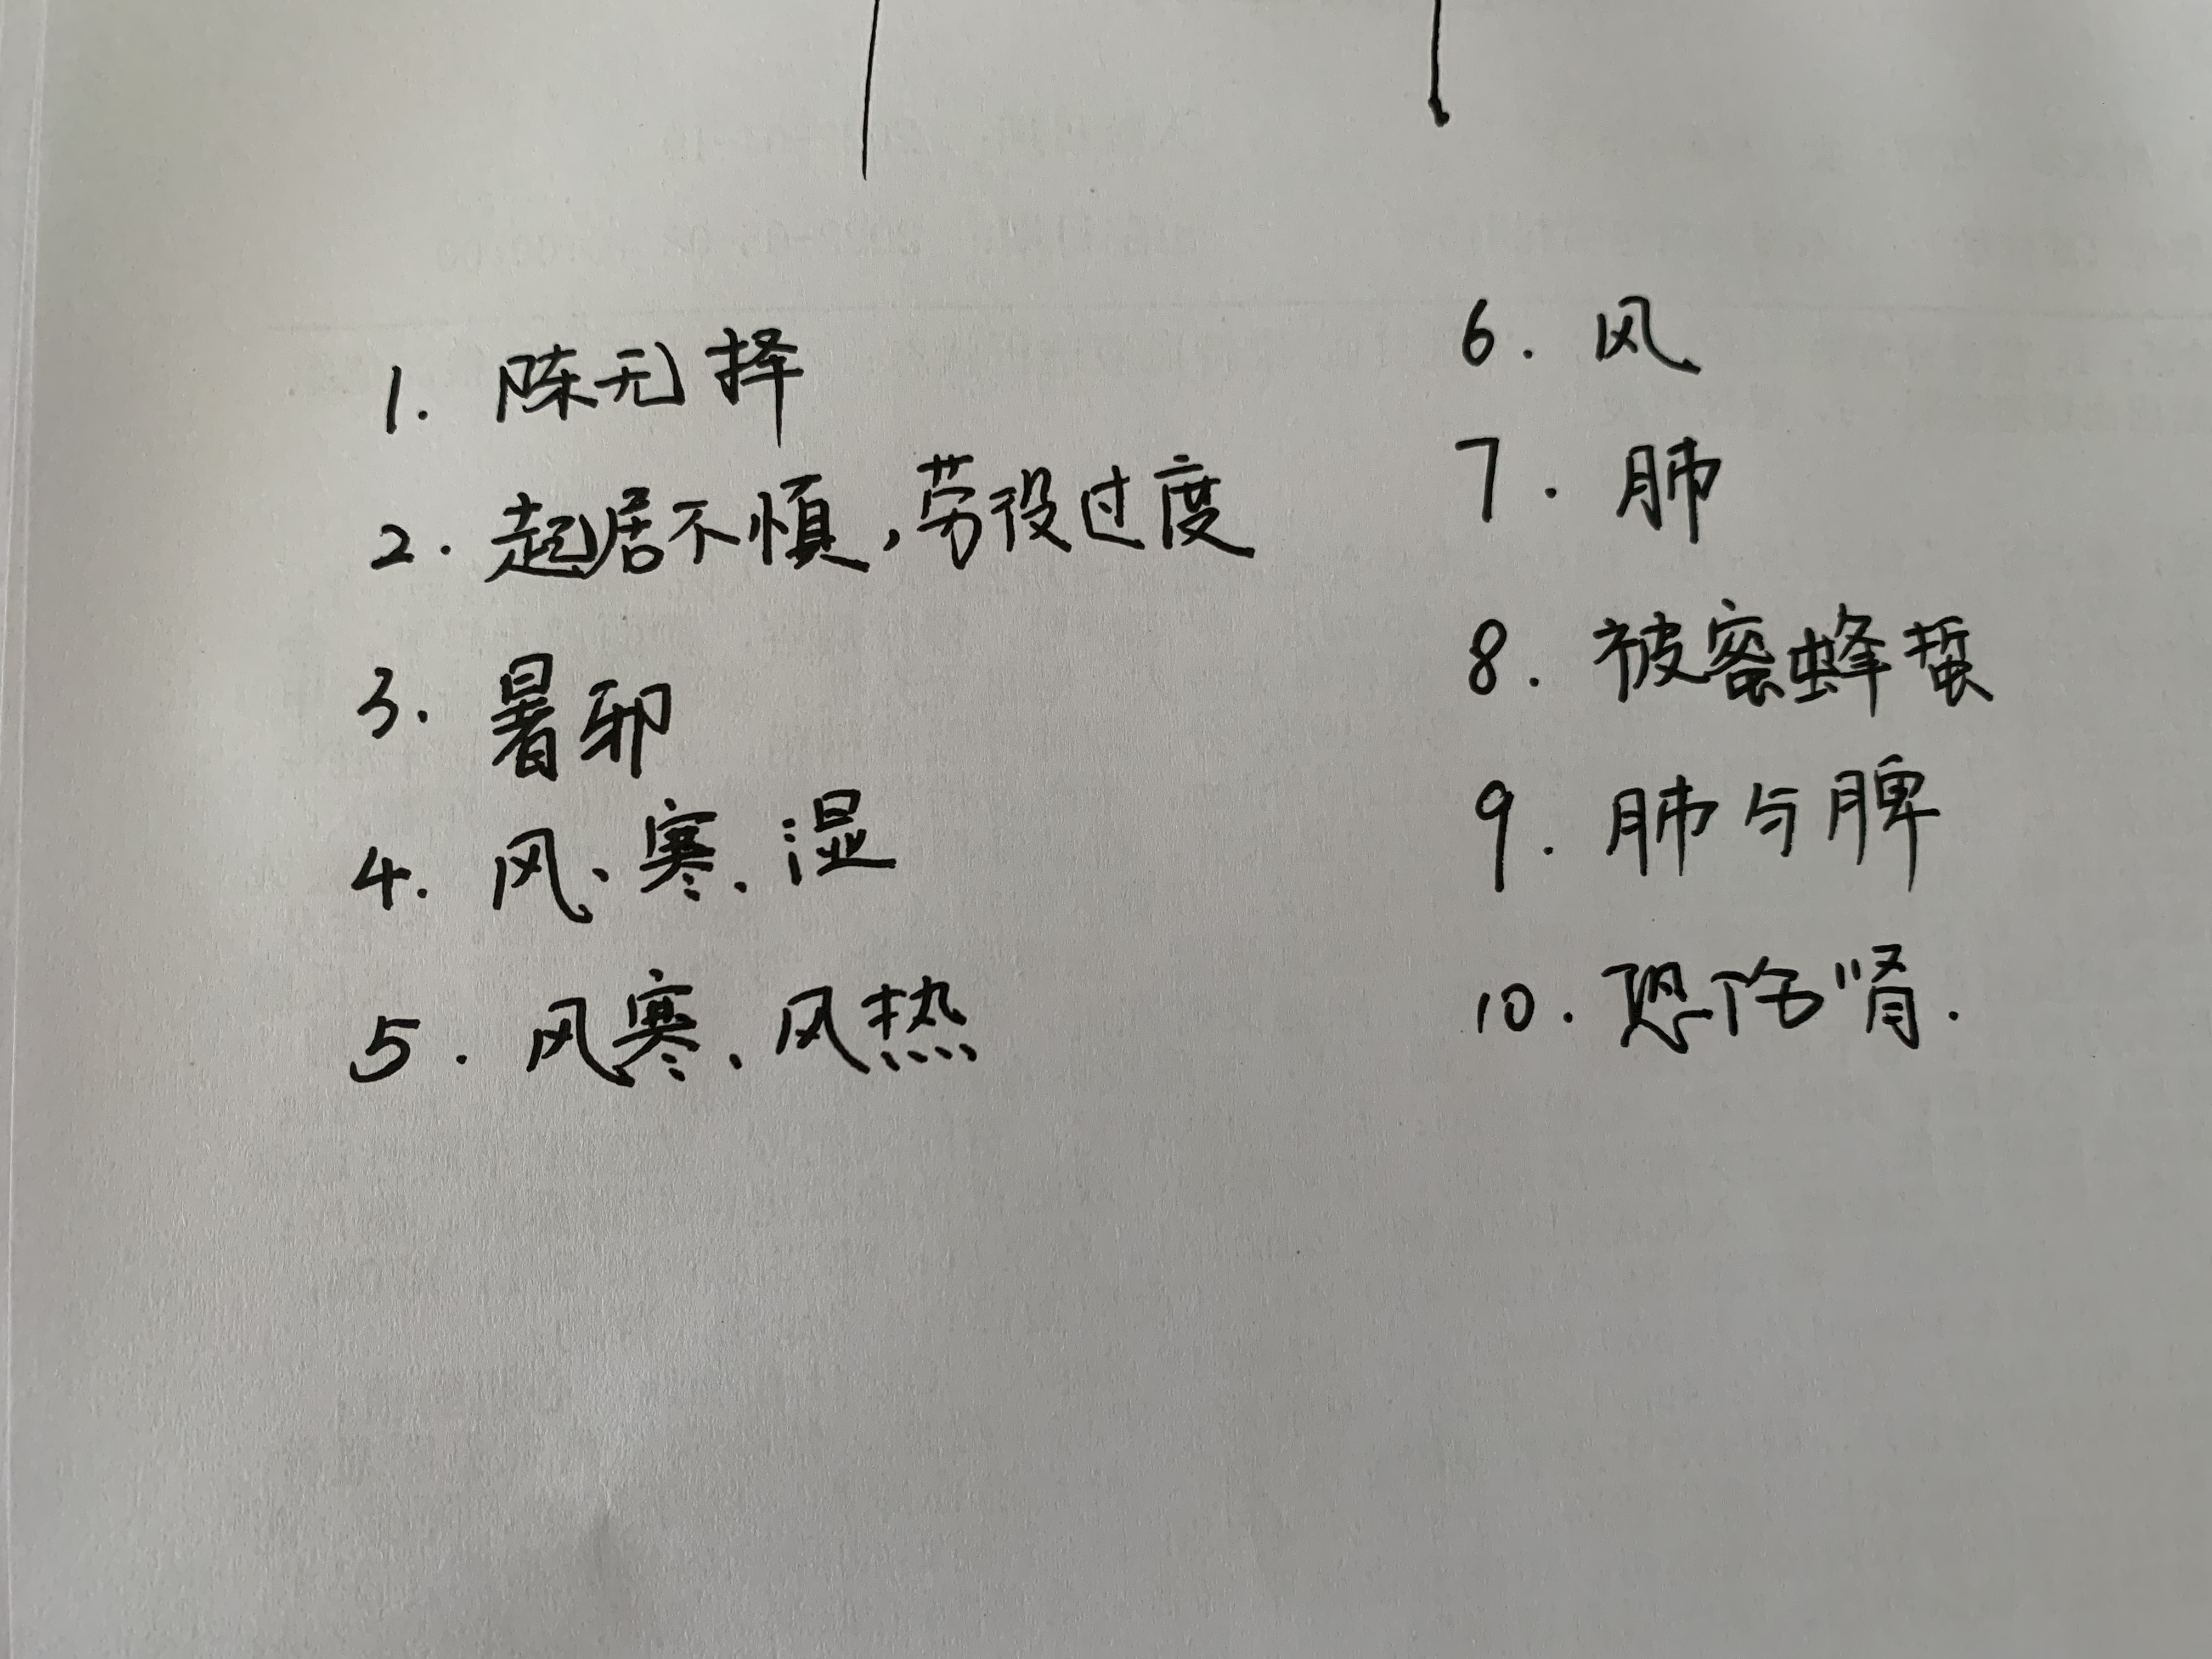 1. 陈无择
2. 起居不慎,劳役过度
3. 暑邪
4. 风、寒、湿
5. 风寒、风热
6. 风
7. 肺
8. 被蜜蜂蜇
9. 肺与脾
10. 恐伤肾.